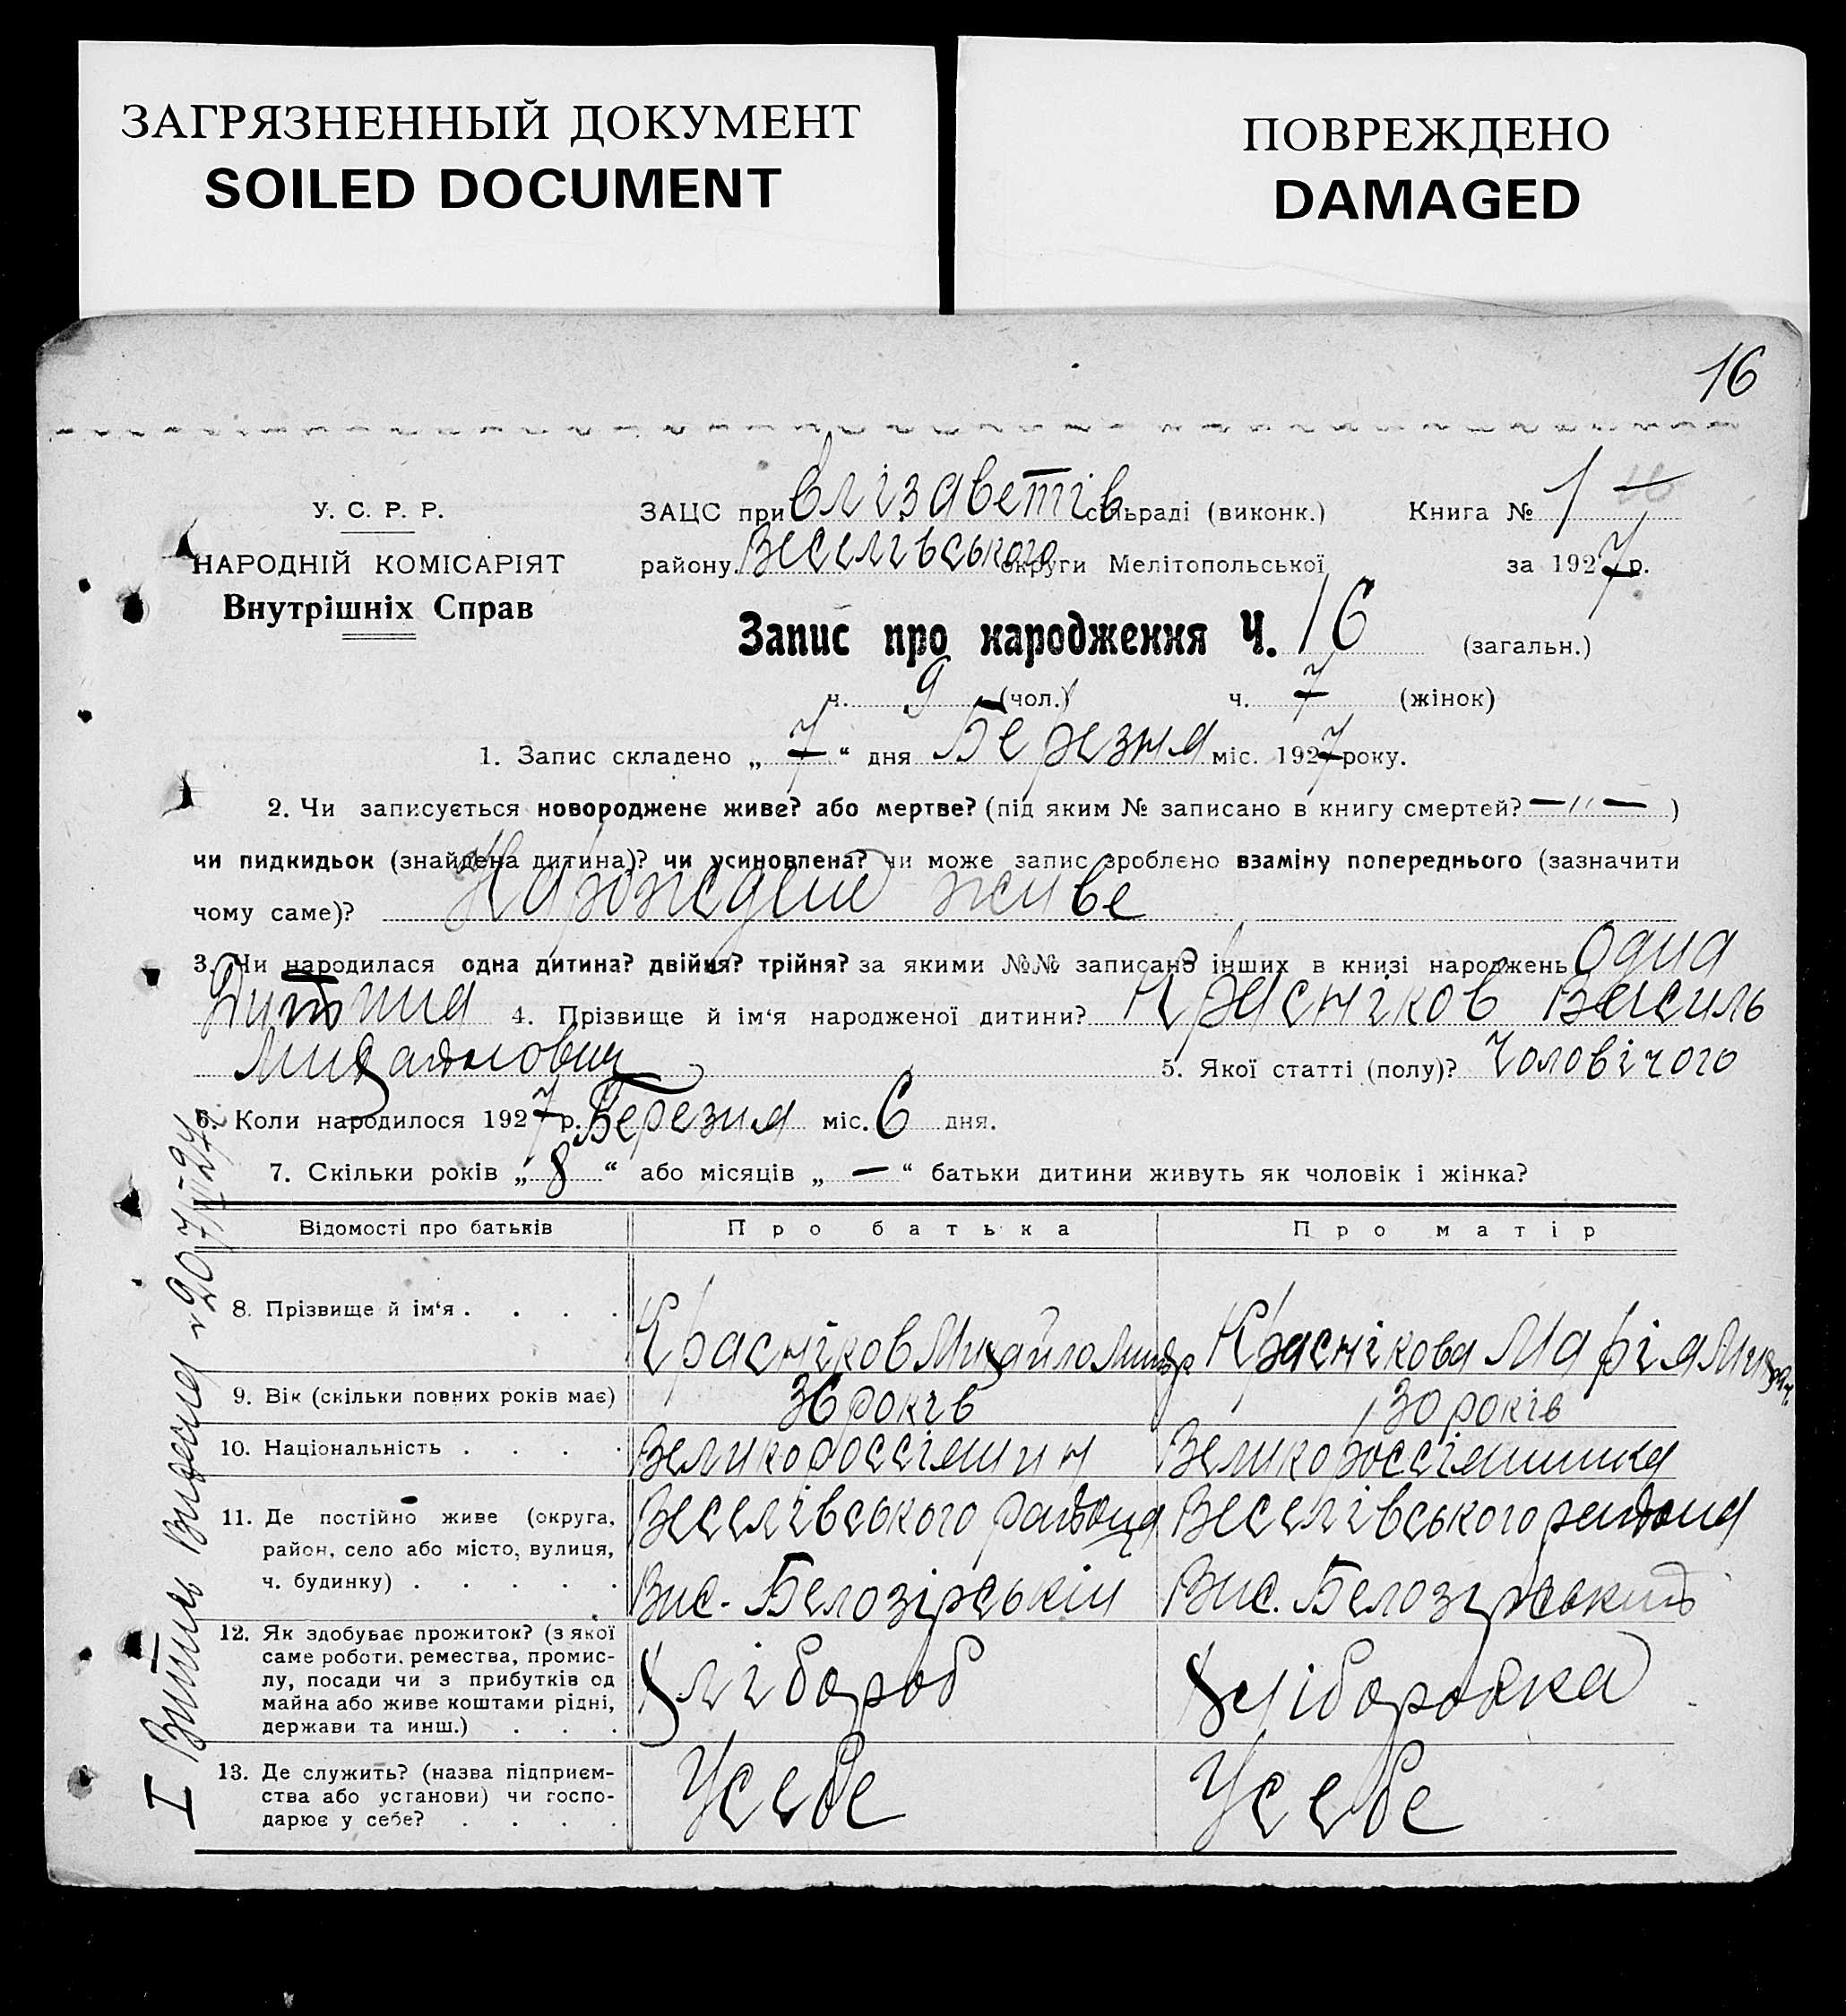 ЗАГРЯЗНЕННЫЙ ДОКУМЕНТ
SOILED DOCUMENT
ПОВРЕЖДЕНО
DAMAGED
16
У. С. Р. Р.
НАРОДНІЙ КОМІСАРІЯТ
Внутрішніх Справ
ЗАЦС при Єлізаветів сільраді (виконк.) Книга № 1
району Веселівського округи Мелітопольської за 1927 р.
Запис про народження Ч. 16 (загальн.)
ч. 9 (чол.) ч. 7 (жінок)
1. Запис складено „ 7 “ дня Березня міс. 1927 року.
2. Чи записується новороджене живе? або мертве? (під яким № записано в книгу смертей? — " — )
чи пидкидьок (знайдена дитина)? чи усиновлена? чи може запис зроблено взаміну попереднього (зазначити
чому саме)? Нарождене живе
3. Чи народилася одна дитина? двійня? трійня? за якими №№ записано інших в книзі народжень Одна
Дитина 4. Прізвище й ім‘я народженої дитини? Красніков Василь
Михайлович 5. Якої статті (полу)? Чоловічого
6. Коли народилося 1927 р. Березня міс. 6 дня.
7. Скільки років „ 8 “ або місяців „ — “ батьки дитини живуть як чоловік і жінка?
Відомості про батьків Про батька Про матір
8. Прізвище й ім‘я . . . . Красніков Михайло Краснікова Марія
9. Вік (скільки повних років має) 36 років 30 років
10. Національність . . . . Великороссіянин Великороссіянинка
11. Де постійно живе (округа, Веселівського района Веселівського района
район, село або місто, вулиця,
ч. будинку) . . . . . Вис. Белозірській Вис. Белозірський
12. Як здобуває прожиток? (з якої
саме роботи, ремества, промис-
лу, посади чи з прибутків од Хлібороб Хліборобка
майна або живе коштами рідні,
держави та инш.) . . .
13. Де служить? (назва підприєм-
ства або установи) чи госпо- У себе У себе
дарює у себе? . . . .
I Витись Видана